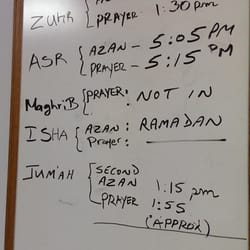 ZUHR PRAYER 1:30 pm
ASR AZAN - 5:05 PM
PRAYER - 5:15 PM
MaghriB PRAYER: : NOT IN
ISHA AZAN: RAMADAN
Prayer:
JUM'AH SECOND
AZAN 1:15 pm
PRAYER 1:55
(APPROX)